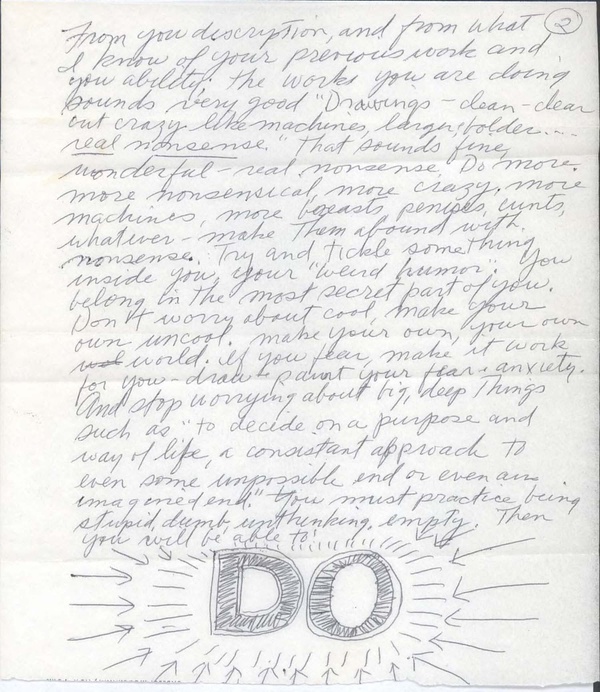 From you discription, and from what
2
I know of your previous work and
you ability; the works you are doing
sounds very good "Drawings - clean - clear
but crazy like machines, larger, bolder....
real nonsense." That sounds fine,
wonderful - real nonsense. Do more.
more nonsensical, more crazy. more
machines, more breasts, penises, cunts,
whatever - make them abound with
nonsense. Try and tickle something
inside you, your "weird humor." You
belong in the most secret part of you.
Don't worry about cool, make your
own uncool. make your own, your own
world. If you fear, make it work
for you - draw & paint your fear & anxiety.
And stop worrying about big, deep things
such as "to decide on a purpose and
way of life, a consistant approach to
even some impossible end or even an
imagened end." You must practice being
stupid, dumb, unthinking, empty. Then
you will be able to
DO